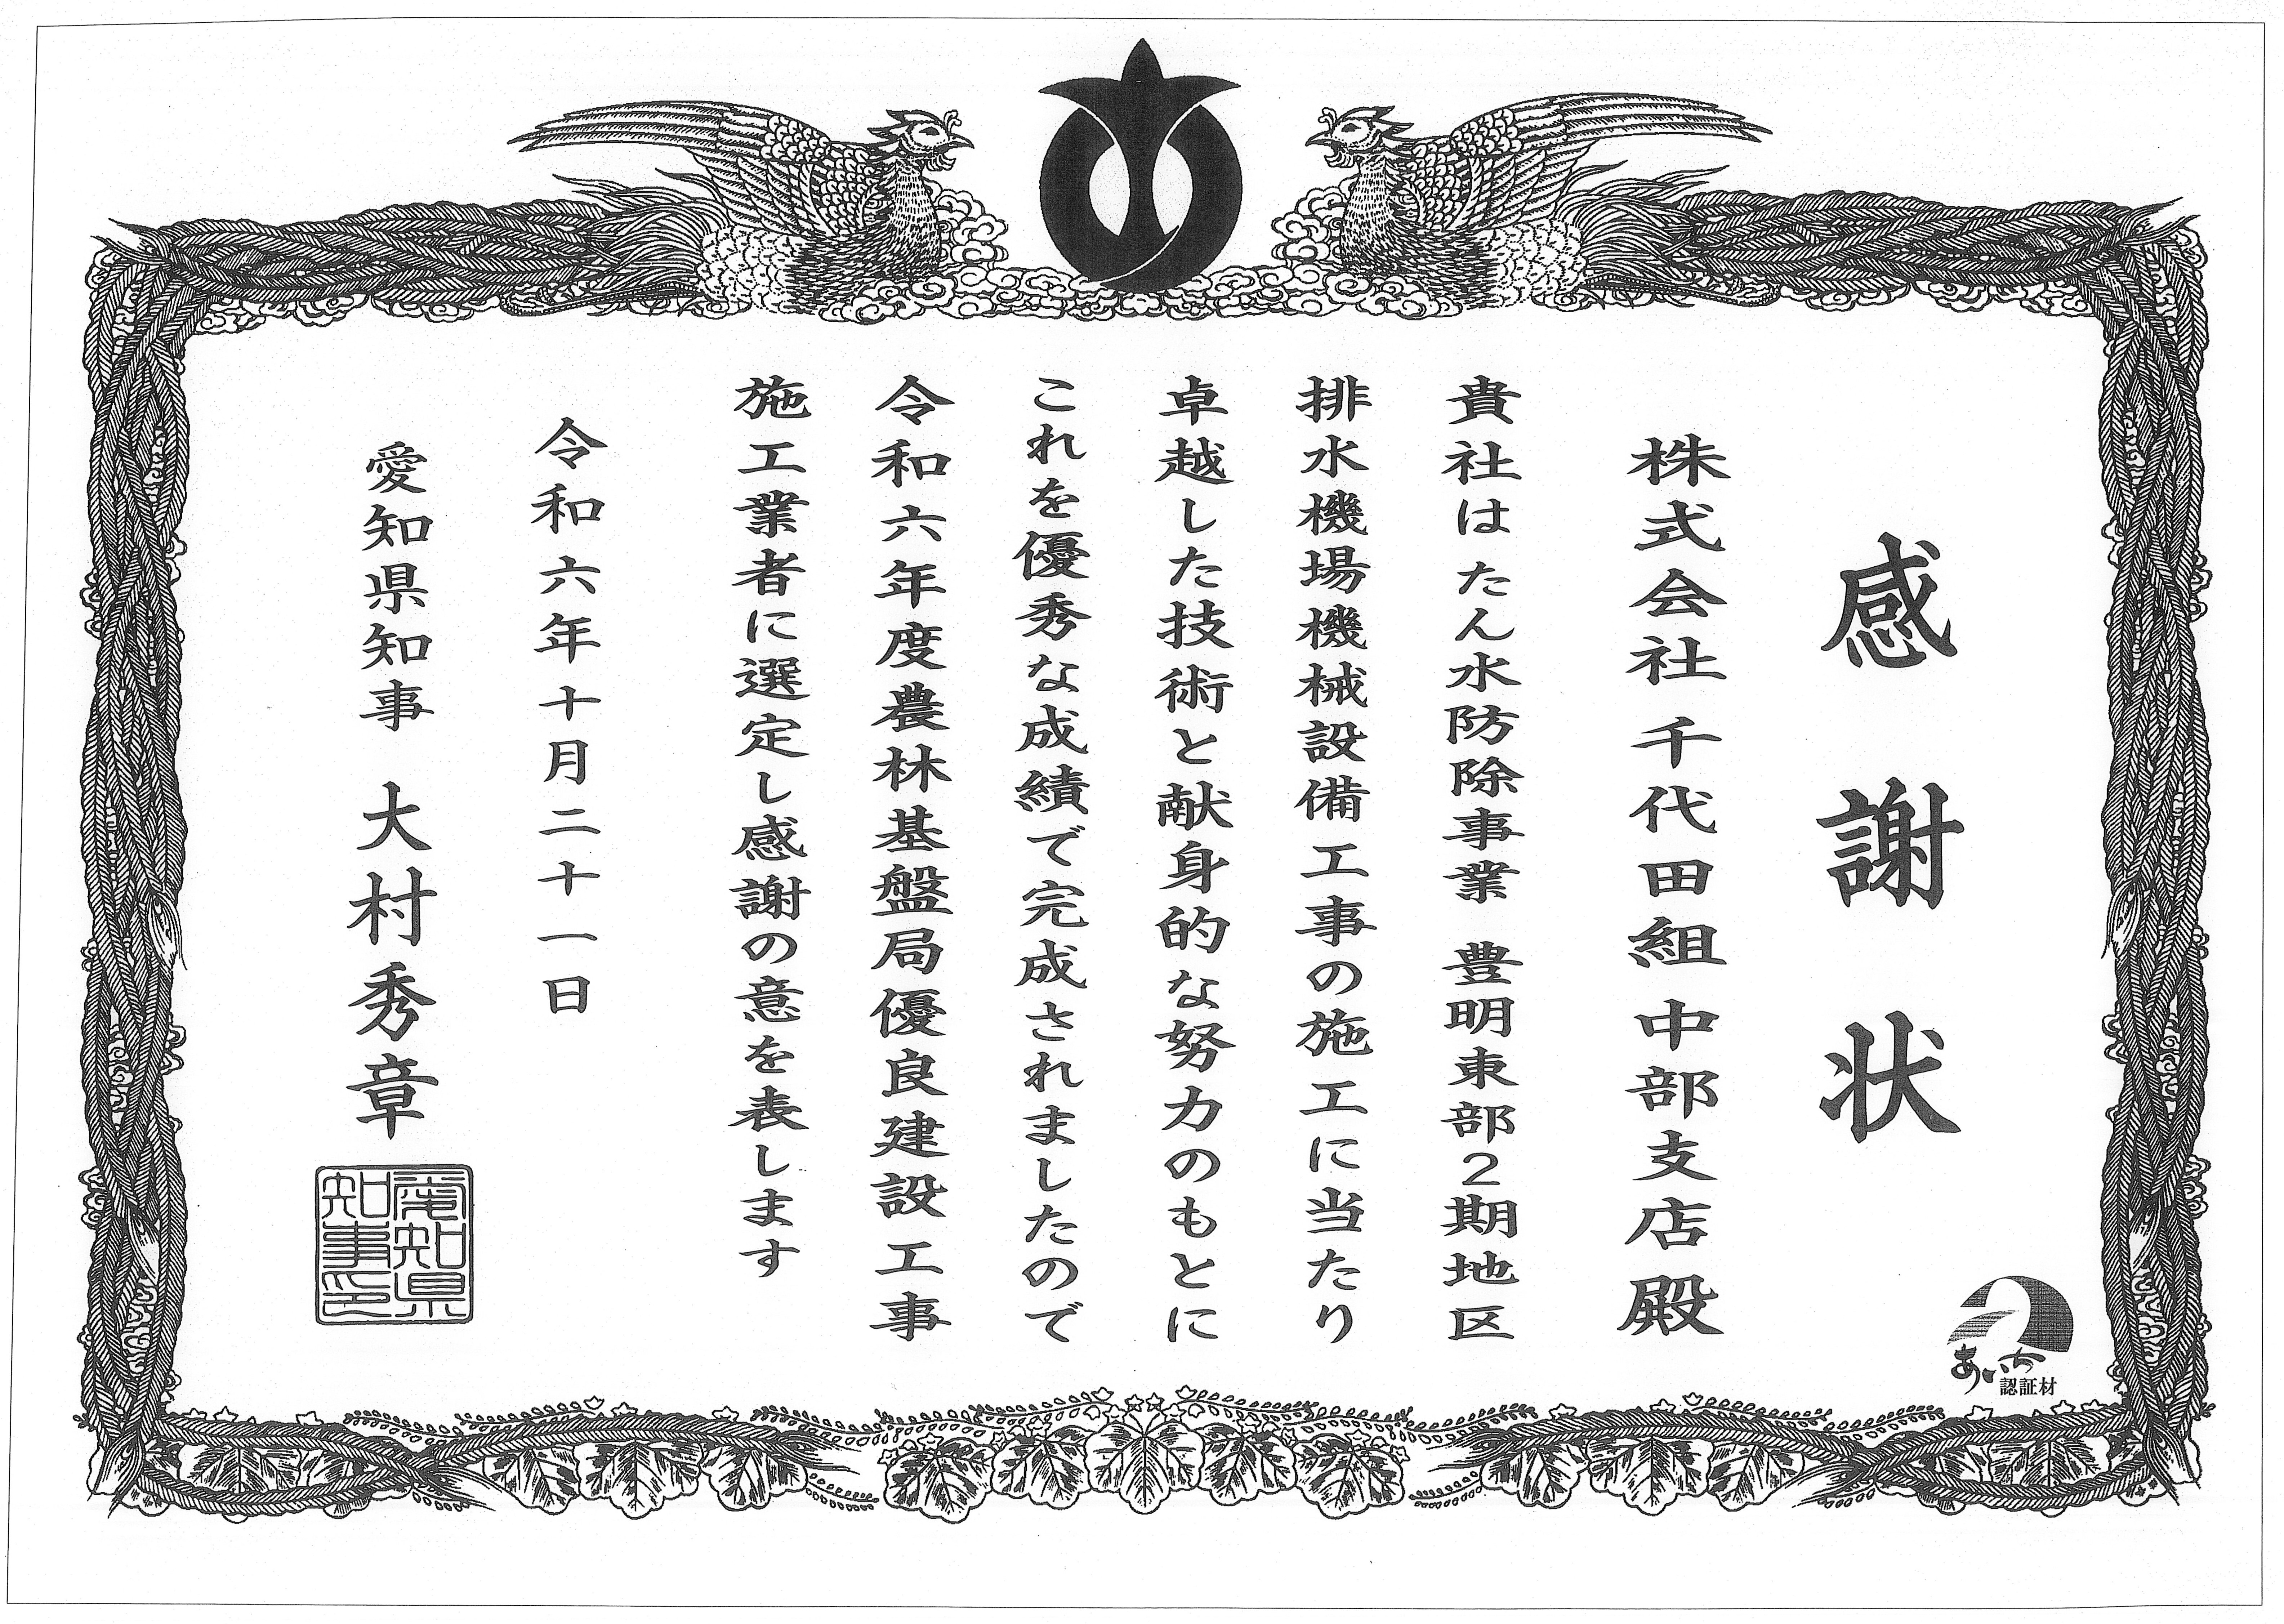 感謝状
株式会社千代田組中部支店殿
貴社はたん水防除事業 豊明東部2期地区
排水機場機械設備工事の施工に当たり
卓越した技術と献身的な努力のもとに
これを優秀な成績で完成されましたので
令和六年度農林基盤局優良建設工事
施工業者に選定し感謝の意を表します
令和六年十月二十一日
愛知県知事 大村秀章
愛知県
知事印
あいち
認証材